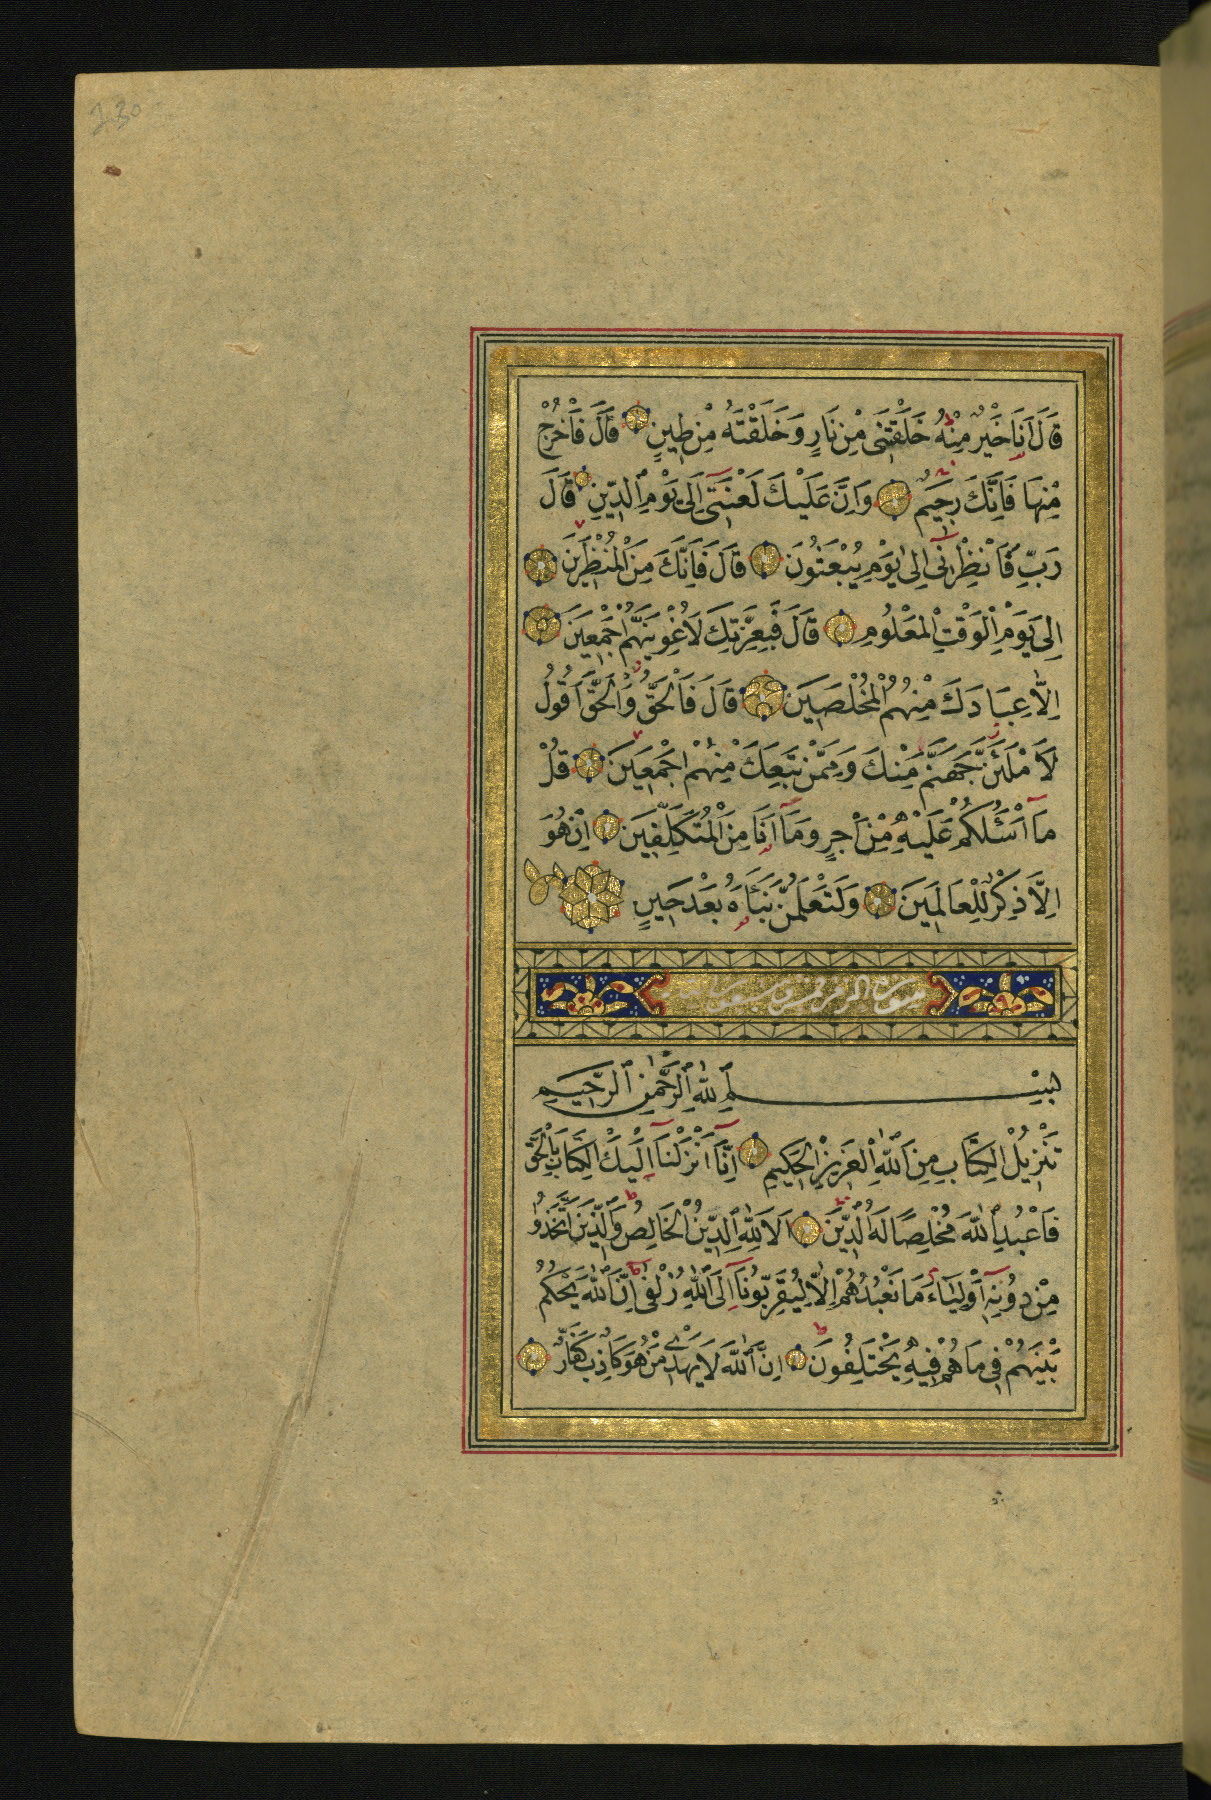 230
قَالَ اَنَا خَيْرٌ مِنْهُ خَلَقْتَنِى مِنْ نَارٍ وَخَلَقْتَهُ مِنْ طِينٍ قَالَ فَاخْرُجْ
مِنْهَا فَاِنَّكَ رَجِيمٌ وَاِنَّ عَلَيْكَ لَعْنَتِىٓ اِلٰى يَوْمِ الدِّينِ قَالَ
رَبِّ فَاَنْظِرْنِىٓ اِلٰى يَوْمِ يُبْعَثُونَ قَالَ فَاِنَّكَ مِنَ الْمُنْظَرِينَ
اِلٰى يَوْمِ الْوَقْتِ الْمَعْلُومِ قَالَ فَبِعِزَّتِكَ لَاُغْوِيَنَّهُمْ اَجْمَعِينَ
اِلَّا عِبَادَكَ مِنْهُمُ الْمُخْلَصِينَ قَالَ فَالْحَقُّ وَالْحَقَّ اَقُولُ
لَاَمْلَئَنَّ جَهَنَّمَ مِنْكَ وَمِمَّنْ تَبِعَكَ مِنْهُمْ اَجْمَعِينَ قُلْ
مَآ اَسْـَٔلُكُمْ عَلَيْهِ مِنْ اَجْرٍ وَمَآ اَنَا مِنَ الْمُتَكَلِّفِينَ اِنْ هُوَ
اِلَّا ذِكْرٌ لِلْعَالَمِينَ وَلَتَعْلَمُنَّ نَبَاَهُ بَعْدَ حِينٍ
سورة الزمر
بِسْمِ اللّٰهِ الرَّحْمٰنِ الرَّحِيمِ
تَنْزِيلُ الْكِتَابِ مِنَ اللّٰهِ الْعَزِيزِ الْحَكِيمِ اِنَّآ اَنْزَلْنَآ اِلَيْكَ الْكِتَابَ بِالْحَقِّ
فَاعْبُدِ اللّٰهَ مُخْلِصًا لَهُ الدِّينَ اَلَا لِلّٰهِ الدِّينُ الْخَالِصُ وَالَّذِينَ اتَّخَذُوا
مِنْ دُونِهِٓ اَوْلِيَآءَ مَا نَعْبُدُهُمْ اِلَّا لِيُقَرِّبُونَآ اِلَى اللّٰهِ زُلْفٰى اِنَّ اللّٰهَ يَحْكُمُ
بَيْنَهُمْ فِى مَا هُمْ فِيهِ يَخْتَلِفُونَ اِنَّ اللّٰهَ لَا يَهْدِى مَنْ هُوَ كَاذِبٌ كَفَّارٌ